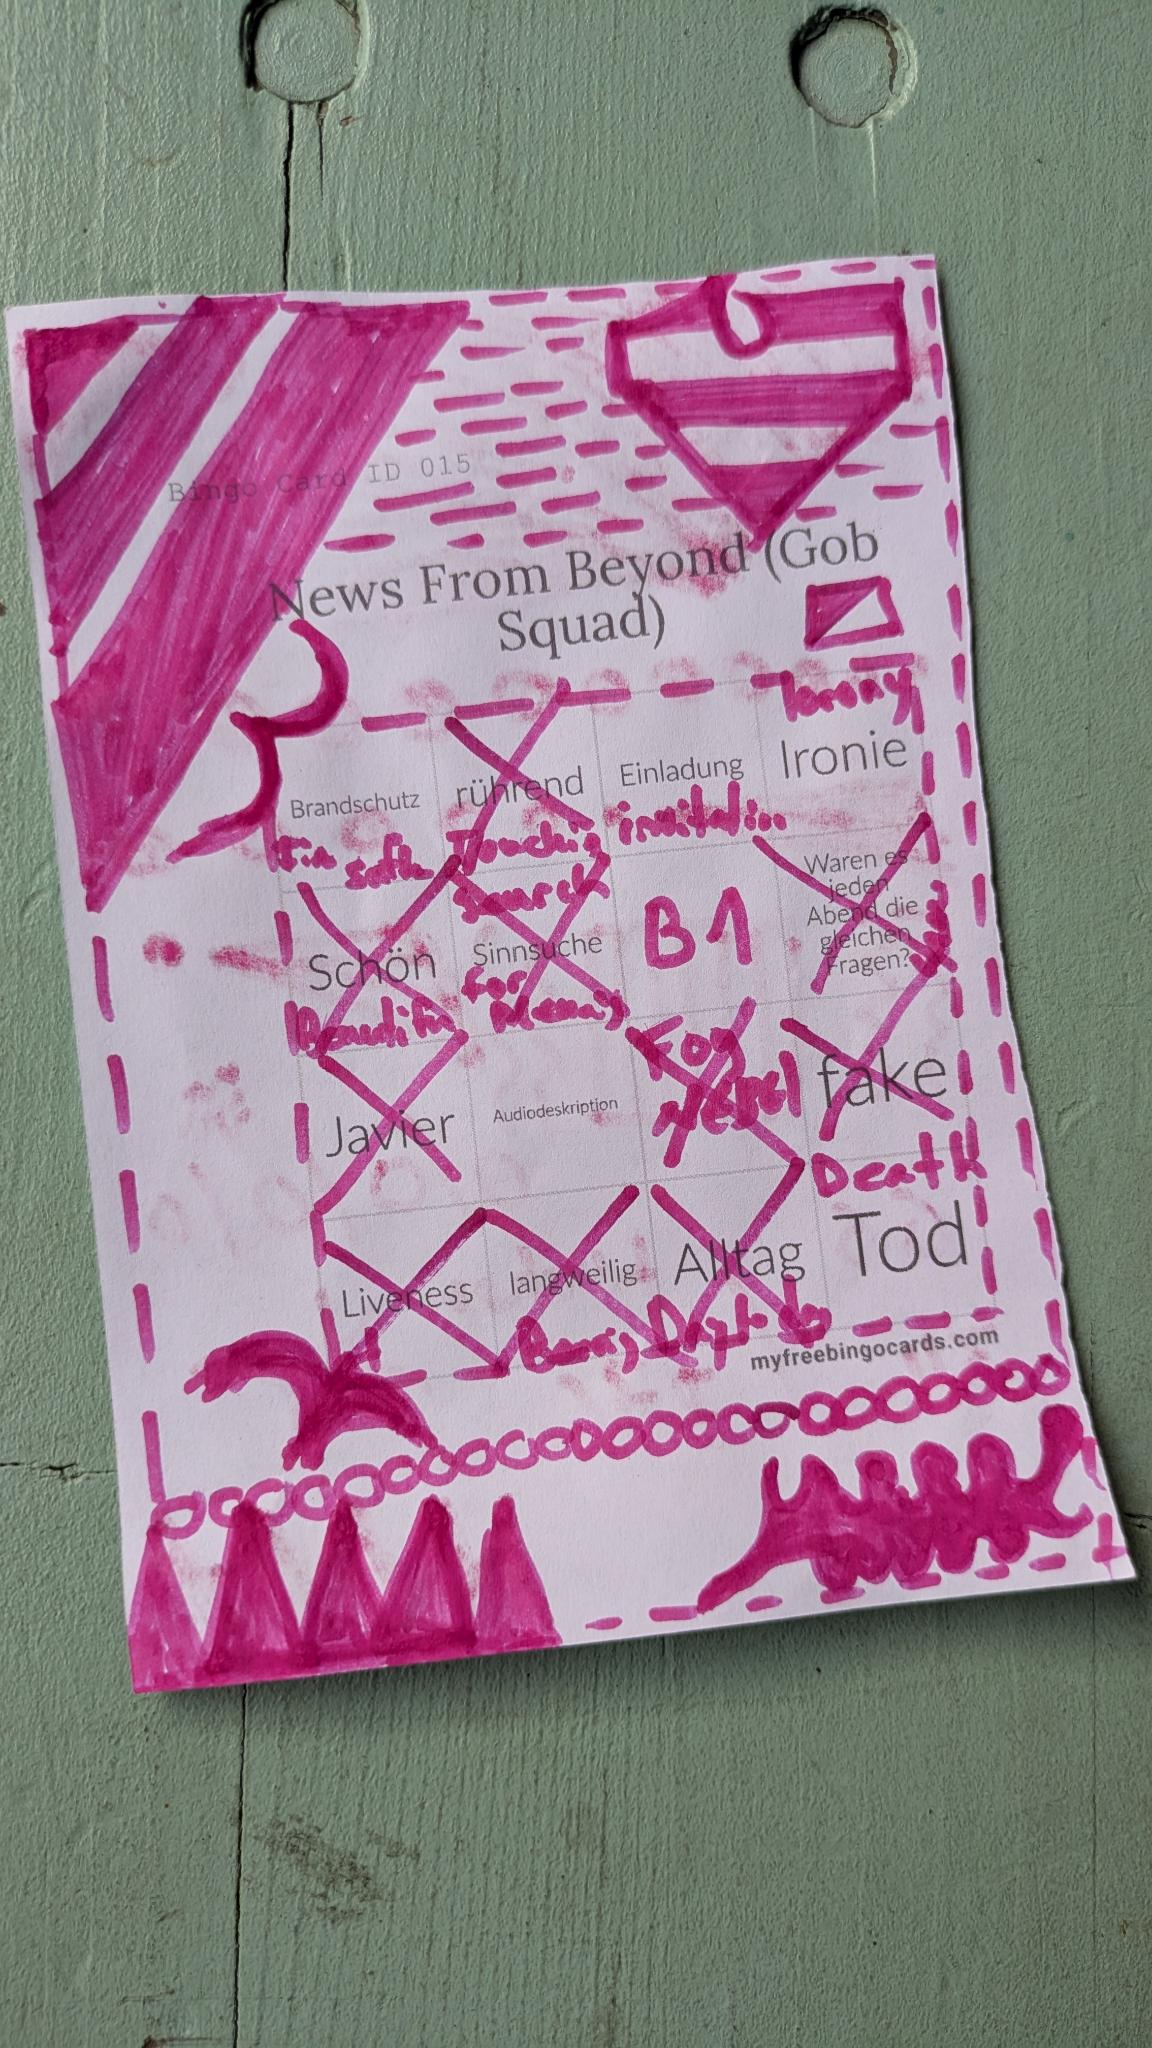 Bingo Card ID 015
News From Beyond (Gob
Squad)
Irony
Brandschutz
rührend
Einladung
Ironie
invitation
Search
Schön
Sinnsuche
for
B1
Waren es
jeden
Abend die
gleichen
Fragen?
Javier
Audiodeskription
Fog
fake
Death
Liveness
langweilig
Alltag
Tod
myfreebingocards.com